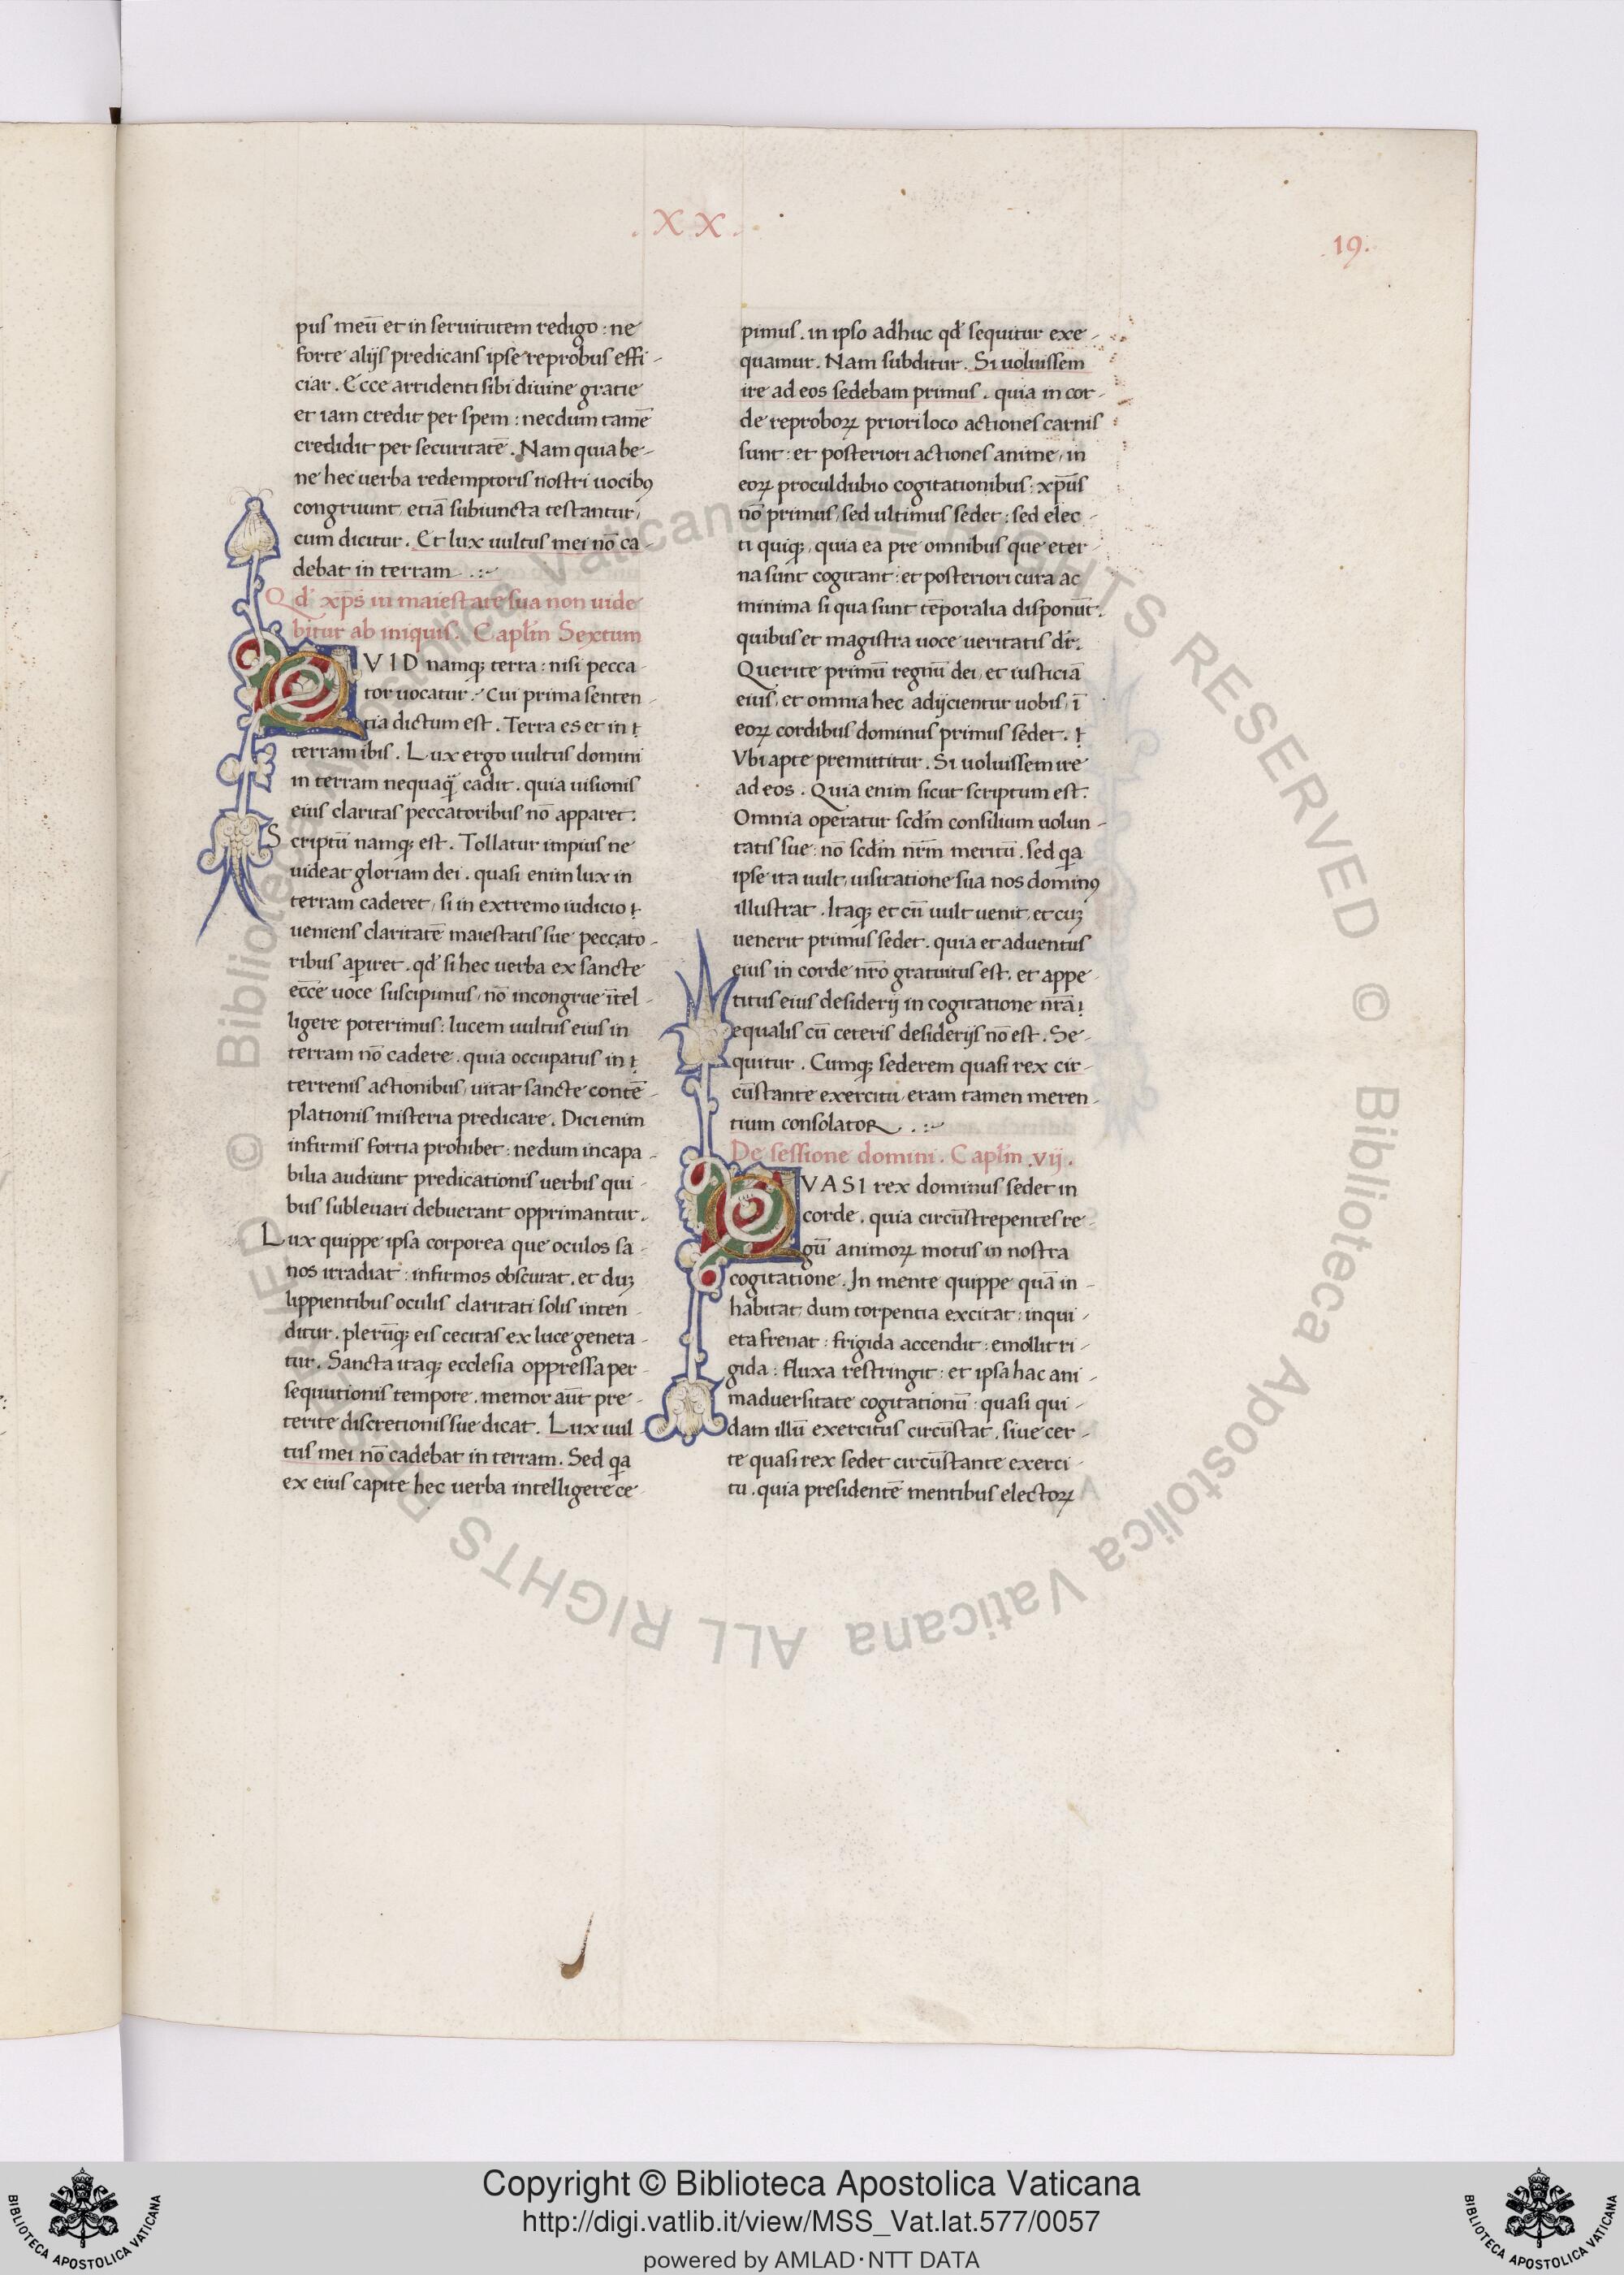 .XX.
19.
pus meū et in seruitutem redigo : ne
forte alijs predicans ipse reprobus effi-
ciar . Ecce arridenti sibi diuine gratie
et iam credit per spem : necdum tamē
credidit per securitatē . Nam quia be-
ne hec uerba redemptoris nostri uocibꝰ
congruunt etiā subiuncta testantur,
cum dicitur . Et lux uultus mei nō ca-
debat in terram . :~
Qd̄ xp̄s in maiestate sua non uide
bitur ab iniquis . Caplm̄ Sextum
QVID namqꝫ terra : nisi pecca-
tor uocatur . Cui prima senten-
tia dictum est . Terra es et in
terram ibis . Lux ergo uultus domini
in terram nequaq̄ cadit . quia uisionis
eius claritas peccatoribus nō apparet .
Scriptū namqꝫ est . Tollatur impius ne
uideat gloriam dei . quasi enim lux in
terram caderet , si in extremo iudicio
ueniens claritatē maiestatis sue peccato-
ribus aperiret . qd̄ si hec uerba ex sancte
ecc̄e uoce suscipimus , nō incongrue ītel-
ligere poterimus : lucem uultus eius in
terram nō cadere . quia occupatus in
terrenis actionibus , uitat sancte contē-
plationis misteria predicare . Dici enim
infirmis fortia prohibet : ne dum incapa-
bilia audiunt predicationis uerbis qui-
bus subleuari debuerant opprimantur .
Lux quippe ipsa corporea que oculos sa-
nos irradiat : infirmos obscurat . et duꝫ
lippientibus oculis claritati solis inten-
ditur . plerūqꝫ eis cecitas ex luce genera-
tur . Sancta itaqꝫ ecclesia oppressa per-
sequutionis tempore . memor aūt pre-
terite discretionis sue dicat . Lux uul-
tus mei nō cadebat in terram . Sed qa
ex eius capite hec uerba intelligere ce-
pimus . in ipso adhuc qd̄ sequitur exe-
quamur . Nam subditur . Si uoluissem
ire ad eos sedebam primus . quia in cor-
de reproboꝝ priori loco actiones carnis
sunt : et posteriori actiones anime , in
eoꝝ procul dubio cogitationibus : xp̄us
nō primus , sed ultimus sedet : sed elec-
ti quiqꝫ , quia ea pre omnibus que eter-
na sunt cogitant : et posteriori cura ac
minima si qua sunt tēporalia disponūt .
quibus et magistra uoce ueritatis dr̄ .
Querite primū regnū dei , et iusticiā
eius , et omnia hec adijcientur uobis , ī
eoꝝ cordibus dominus primus sedet .
Vbi apte premittitur . Si uoluissem ire
ad eos . Quia enim sicut scriptum est .
Omnia operatur scdm̄ consilium uolun-
tatis sue : nō scdm̄ nrm̄ meritū . sed qa
ipse ita uult , uisitatione sua nos dominꝰ
illustrat . Itaqꝫ et cū uult uenit , et cuꝫ
uenerit primus sedet . quia et aduentus
eius in corde nr̄o gratuitus est . et appe-
titus eius desiderij in cogitatione nr̄a
equalis cū ceteris desiderijs nō est . Se-
quitur . Cumqꝫ sederem quasi rex cir-
cūstante exercitu , eram tamen meren-
tium consolator . :~
De sessione domini . Caplm̄ .vij .
QVASI rex dominus sedet in
corde . quia circūstrepentes re-
gū animoꝝ motus in nostra
cogitatione . In mente quippe quā in-
habitat , dum torpentia excitat : inqui-
eta frenat : frigida accendit : emollit ri-
gida : fluxa restringit : et ipsa hac ani-
maduersitate cogitationū : quasi qui-
dam illū exercitus circūstat . siue cer-
te quasi rex sedet circūstante exerci-
tu . quia presidentē mentibus electoꝝ
© Biblioteca Apostolica Vaticana ALL RIGHTS RESERVED © Biblioteca Apostolica Vaticana ALL RIGHTS RESERVED
Copyright © Biblioteca Apostolica Vaticana
http://digi.vatlib.it/view/MSS_Vat.lat.577/0057
powered by AMLAD·NTT DATA
BIBLIOTECA APOSTOLICA VATICANA
BIBLIOTECA APOSTOLICA VATICANA